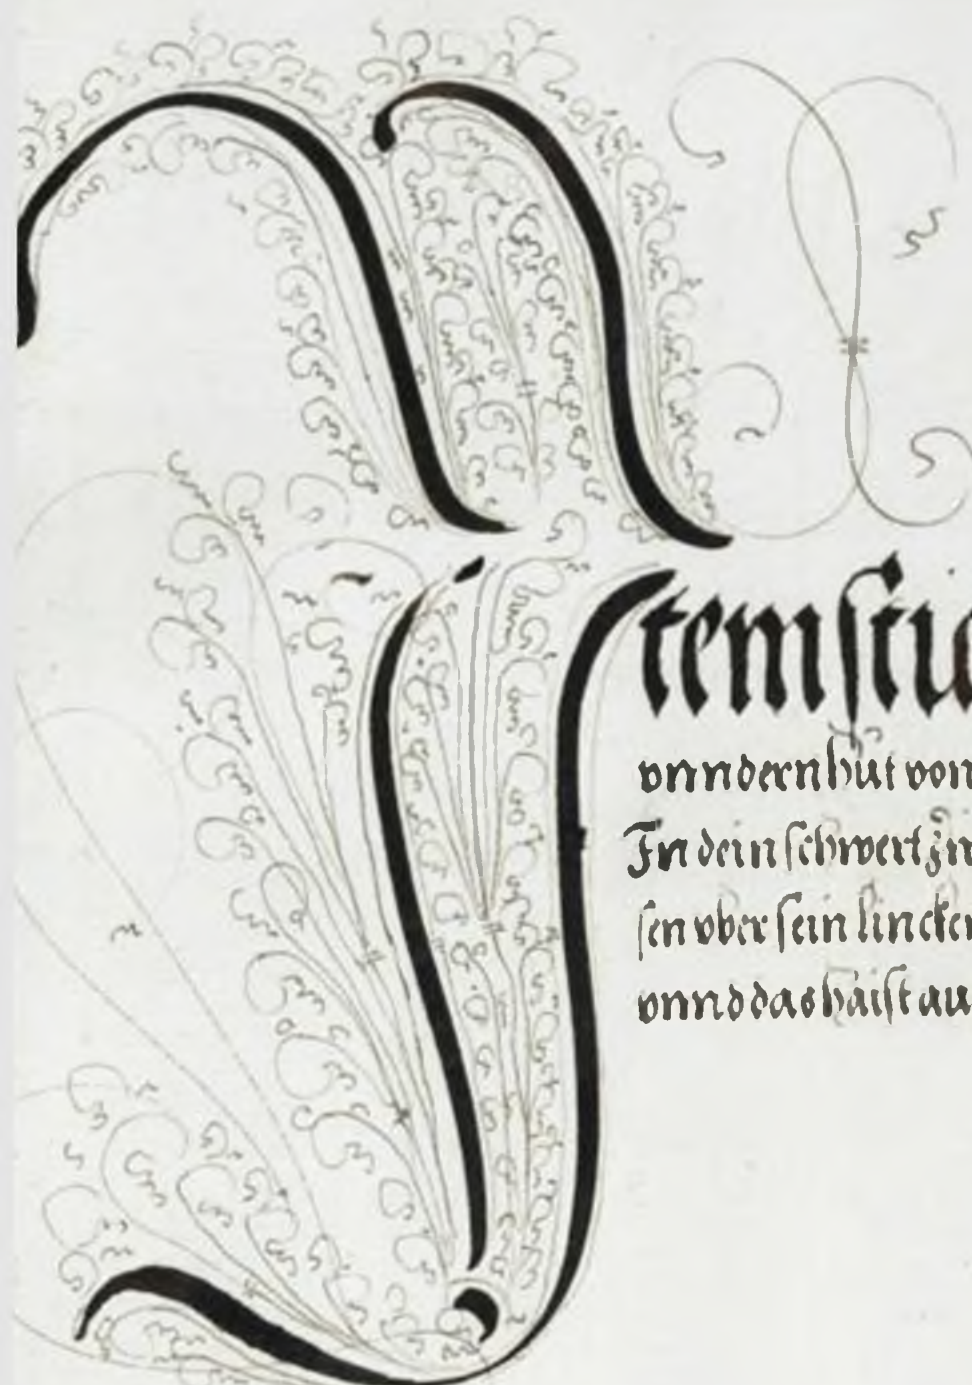 Item stic
vnnd ern hut von
In dein schwert zu
sen vber sein lincken
vnnd das haist au